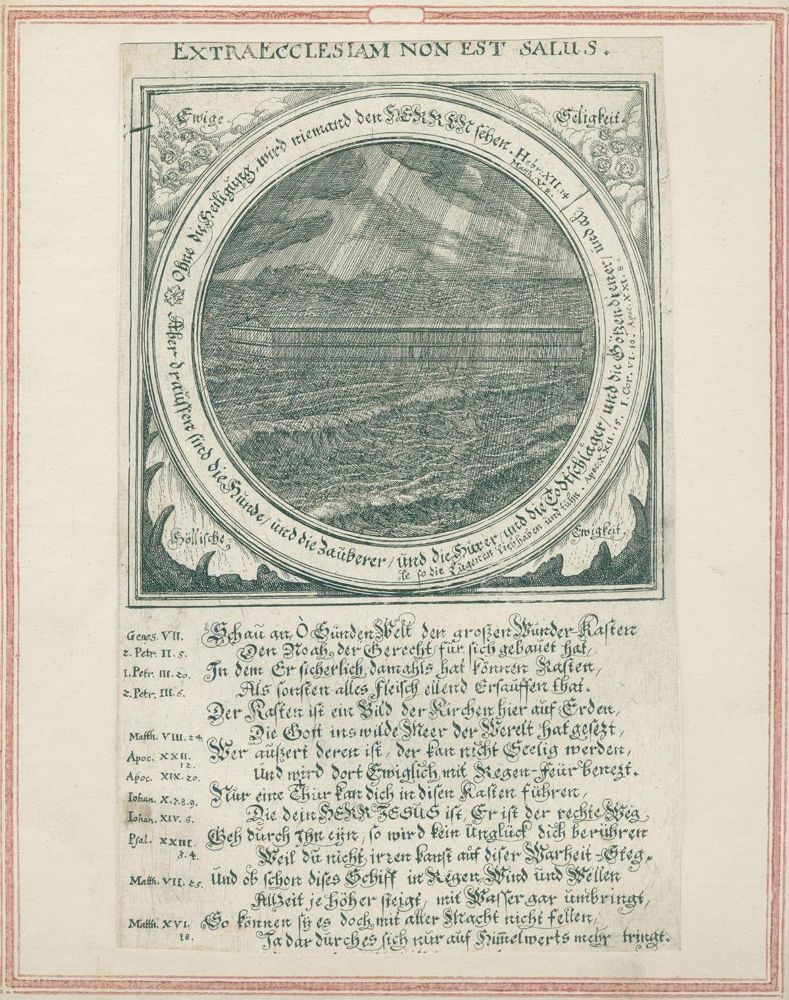 EXTRA ECCLESIAM NON EST SALUS.
Ewige
Seligkeit.
Ohne die Heiligung, wird niemand den HERREN sehen. Hebr. XII. 14
Matth. V. 8.
Aber draussen sind die Hunde / und die Zauberer / und die Hurer / und die Todtschläger / und die Götzendiener / und al
le so die Lügen Lieb haben und tuhn. Apoc. XXII. 15. I. Cor. VI. 10. Apoc. XXI. 8.
Höllische
Ewigkeit.
Genes. VII. Schau an, O Sünden Welt den großen Wunder-Kasten
2. Petr. II. 5. Den Noah, der Gerecht, für sich gebauet hat,
1. Petr. III. 20. In dem Er sicherlich damahls hat können Rasten,
2. Petr. III. 6. Als sonsten alles Fleisch ellend Ersauffen that.
Der Kasten ist ein Bild der Kirchen hier auf Erden,
Matth. VIII. 24. Die Gott ins wilde Meer der Werelt hat gesetzt,
Apoc. XXII. 12. Wer außert deren ist, der kan nicht Seelig werden,
Apoc. XIX. 20. Und wird dort Ewiglich mit Regen-Feür benezt.
Iohan. X. 7. 8. 9. Nur eine Thür kan dich in disen Kasten führen,
Iohan. XIV. 6. Die dein HERR JESUS ist, Er ist der rechte Weg
Psal. XXIII. 3. 4. Geh durch Ihn eyn, so wird kein Unglück dich berühren
Weil du nicht irren kanst auf diser Warheit-Steg,
Matth. VII. 25. Und ob schon dises Schiff in Regen Wind und Wellen
Allzeit je höher steigt, mit Wasser gar umbringt,
Matth. XVI. 18. So können sÿ es doch mit aller Macht nicht fellen,
Ja dardurch es sich nur auf Himelwerts mehr tringt.